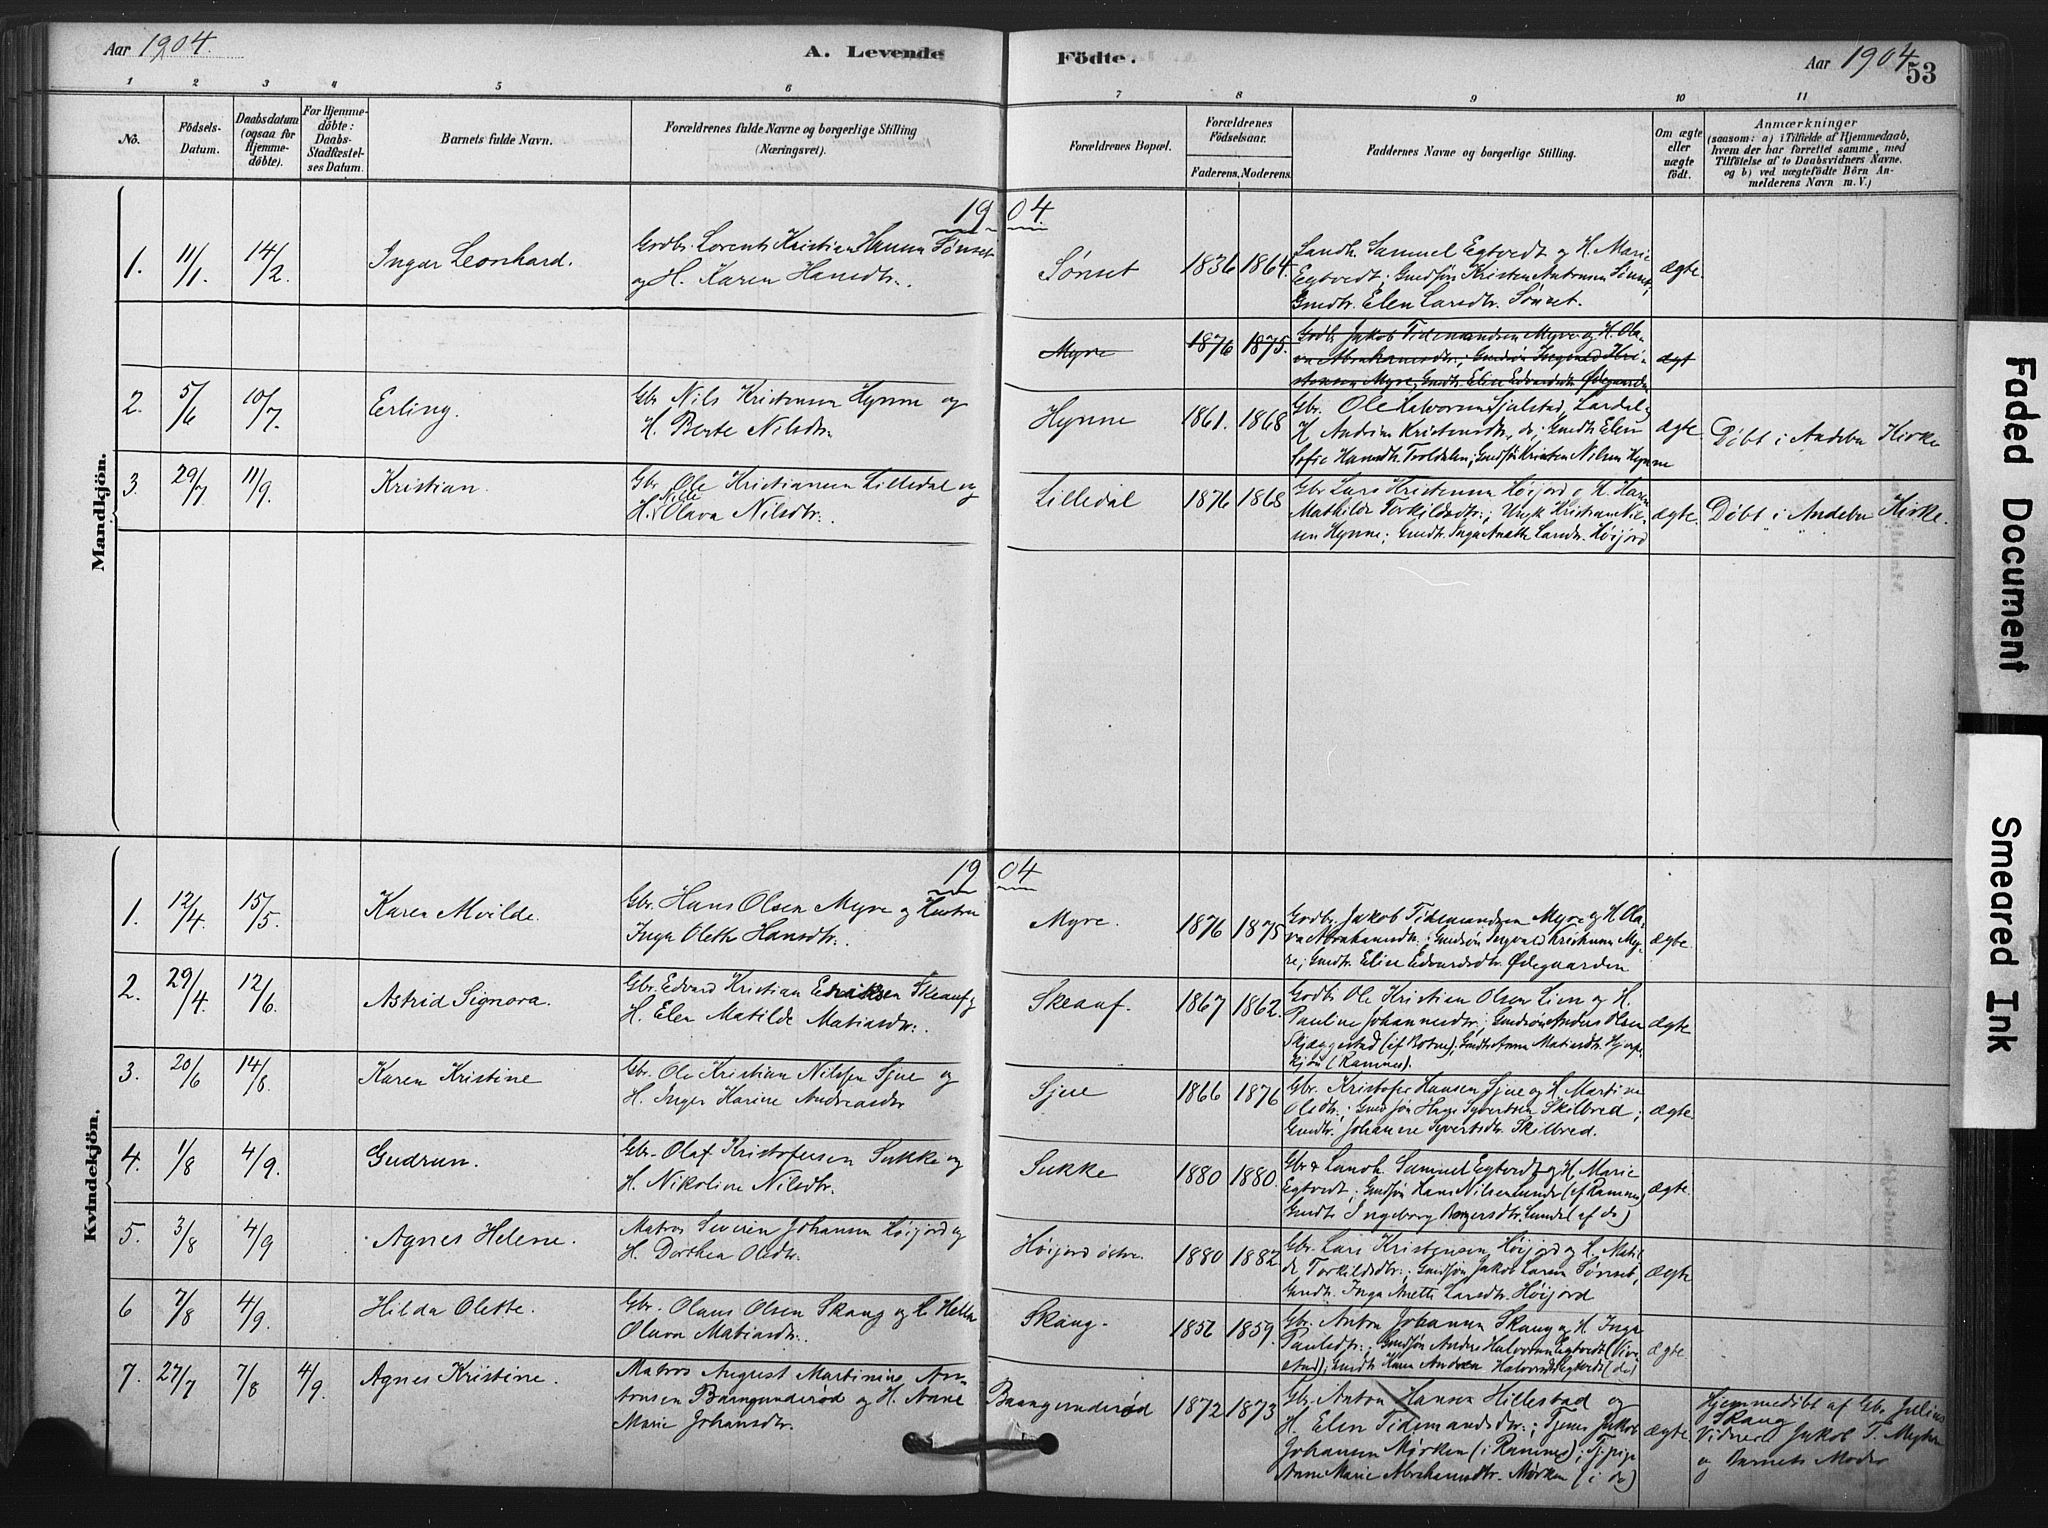 Aar 1904.
A. Levende Födte.
Aar 1904
53
1 2 3 4 5 6 7 8 9 10 11
No.
Födsels-Datum.
Daabsdatum (ogsaa for Hjemmedöbte).
For Hjemmedöbte: Daabs-Stadfæstelses Datum.
Barnets fulde Navn.
Forældrenes fulde Navne og borgerlige Stilling (Næringsvei).
Forældrenes Bopæl.
Forældrenes Födselsaar.
Faderens. Moderens.
Faddernes Navne og borgerlige Stilling.
Om ægte eller uægte födt.
Anmærkninger
(saasom: a) i Tilfælde af Hjemmedaab, hvem der har forrettet samme, med Tilföielse af to Daabsvidners Navne, og b) ved uægtefödte Börn Anmelderens Navn m. V.)
Mandkjön.
1904.
1. 11/1. 14/2. Ingar Leonhard.
Lorents Kristian Hansen Sønset
og H. Karen Hansdtr.
Sønset 1836 1864.
Landh. Samuel Egtvedt og H. Marie
Egtvedt; Gmdsøn Kristen Antonsen Sønset;
Gmdtr. Elen Larsdtr. Sønset.
ægte.
Myre 1876 1875.
Godbr Jakob Tidemandsen Myre og H. Ola-
va Abrahamsdtr.; Gmdsøn Ingvald Kri-
stensen Myre; Gmdtr. Elise Edvardsdtr. Ødegaarden
ægt
2. 5/6 10/7. Erling.
Gbr Nils Kristensen Hynne og
H. Berte Nilsdtr.
Hynne 1861. 1868
Gbr. Ole Halvorsen Sjulstad, Lardal og
H. Andrine Kristensdtr, do; Gmdtr Elen
Sofie Hansdtr. Troldalen; Gmdsøn Kristen Nilsen Hynne
ægte.
Döbt i Andebu Kirke
3. 29/7 11/9. Kristian.
Gbr Ole Kristiansen Lilledal og
H. Nille Olava Nilsdtr.
Lilledal 1876 1868
Gbr Lars Kristensen Høijord o H. Karen
Mathilde Torkildsdtr.; Ungk Kristian Nil-
sen Hynne; Gmdtr. Inga Anette Larsdtr. Høijord
ægte.
Döbt i Andebu Kirke.
Kvindekjön.
1904
1. 12/4. 15/5. Karen Mvilde.
Gbr. Hans Olsen Myre og Hustru
Inga Olette Hansdtr.
Myre. 1876 1875
Godbr Jakob Tidemandsen Myre og H. Ola-
va Abrahamsdtr.; Gmdsøn Ingvald Kristensen My-
re; Gmdtr. Elise Edvardsdtr. Ødegaarden
ægte.
2. 29/4 12/6. Astrid Signora.
Gbr. Edvard Kristian Eriksen Skeauf og
H. Elen Matilde Matiasdtr.
Skeauf. 1867 1862.
Godbr Ole Kristian Olsen Lien og H.
Pauline Johannesdtr.; Gmdsøn Anders Olsen
Skjæggestad (af Botne); Gmdtr Anna Matiasdtr.
(Ramnes).
ægte
3. 20/6 14/8. Karen Kristine
Gbr. Ole Kristian Nilssen Sjue og
H. Inger Karine Andreasdtr
Sjue 1866 1876
Gbr. Kristofer Hansen Sjue og H. Martine
Olsdtr.; Gmdsøn Hage Syvertsen Skilbred;
Gmdtr. Johanne Syvertsdtr. Skilbred.
ægte
4. 1/8 4/9. Gudrun.
Gbr. Olaf Kristofersen Sukke og
H. Nikoline Nilsdtr.
Sukke 1880 1880.
Gbr & Landh. Samuel Egtvedt og H. Marie
Egtvedt; Gmdsøn Hans Nilsen Lunde (af Ramnes)
Gmdtr Ingeborg Borgersdtr. Lundel af do)
ægte.
5. 3/8 4/9 Agnes Helene.
Matros Severin Johansen Høijord og
H. Dorthea Olsdtr.
Høijord østre. 1880 1882
Gbr. Lars Kristensen Høijord og H. Matil-
de Torkildsdtr.; Gmdsøn Jakob Larsen Sønset;
Gmdtr. Inga Anette Larsdtr. Høijord
ægte
6 7/8 4/9. Hilda Olette.
Gbr. Olaus Olsen Skaug og H. Hella
Olava Matiasdtr.
Skaug. 1856 1859.
Gbr. Anton Johansen Skaug og H. Inga
Paulsdtr.; Gmdsøn Andreas Halvorsen Egtvedt
Gmdtr. Karen Andrea Halvorsdtr Egtvedt (do)
ægte
7. 27/7 7/8 4/9. Agnes Kristine.
Matros August Martinius An-
tonsen Baugunderød og H. Anne
Marie Johansdtr.
Baugunderød 1872 1873
Gbr. Anton Hansen Hillestad og
H. Elen Tidemandsdtr.; Tjener Jakob
Johansen Mørken (i Ramnes); Tj.pige
Anne Marie Abrahamsdtr. Mørken (i do)
ægte.
Hjemmedöbt af Gbr Julius
Skaug
Vidner Jakob T. Myhre
og Barnets Moder
Faded Document
Smeared Ink